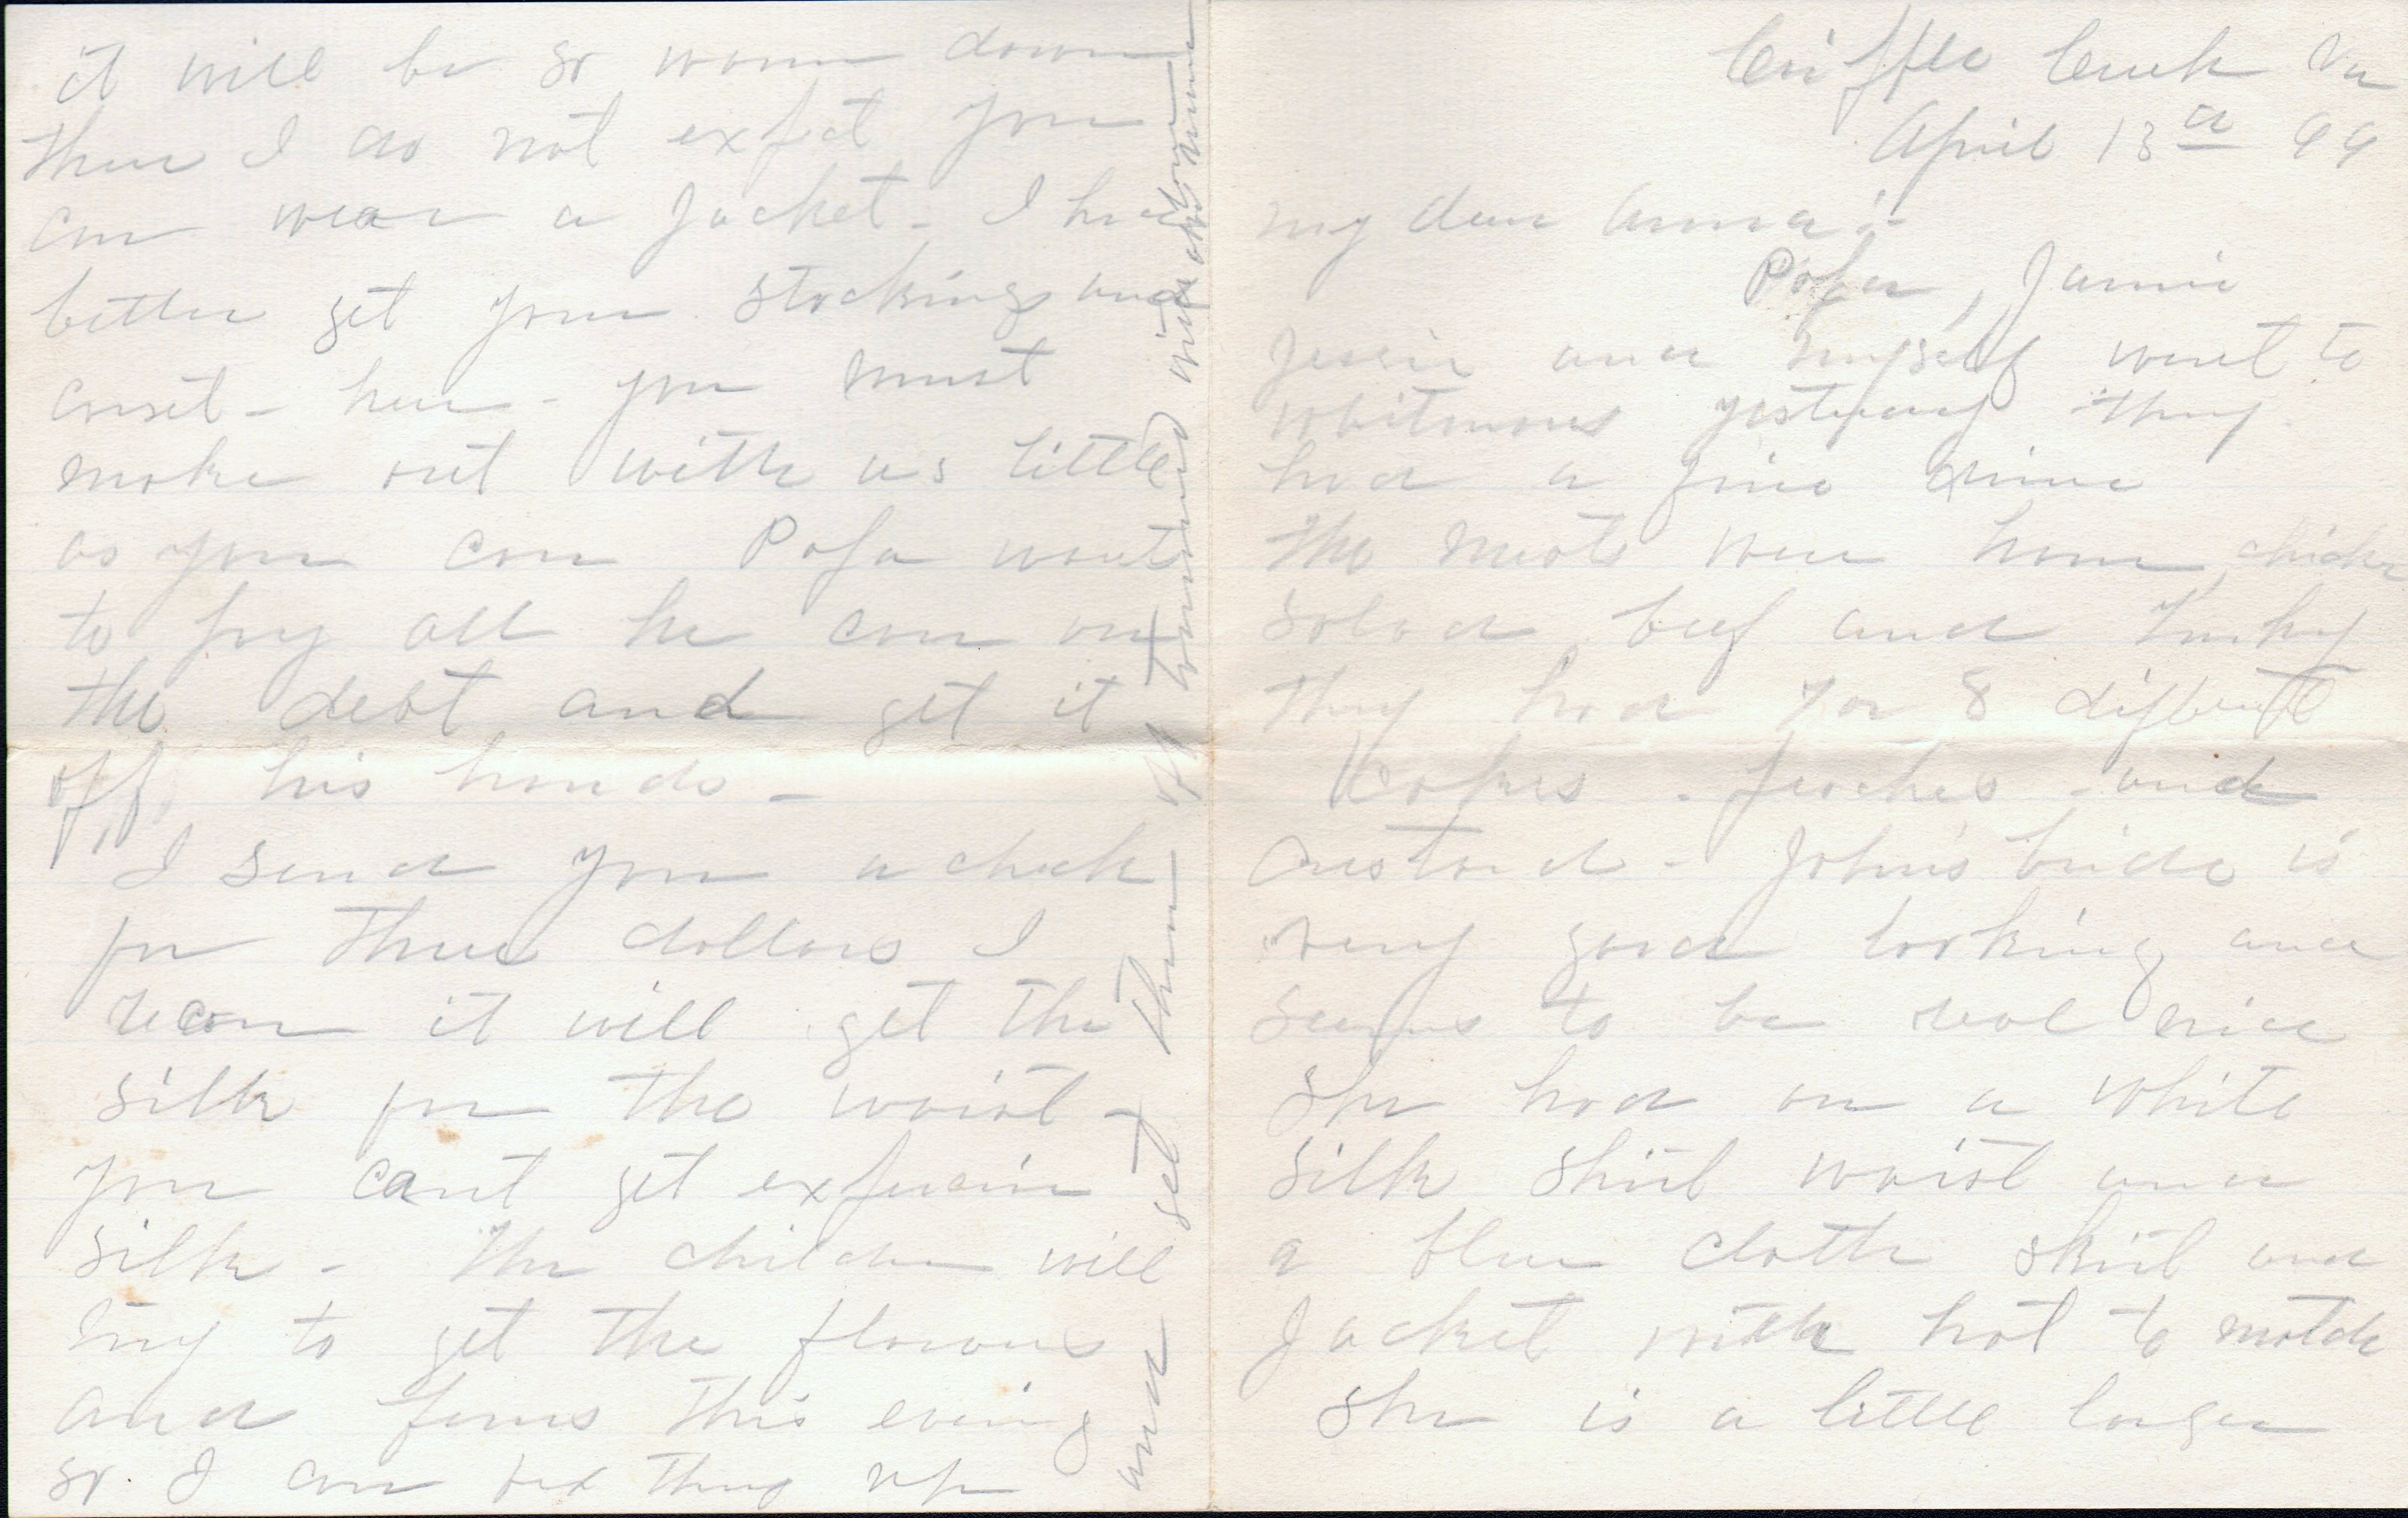 Cripple Creek Va
April 13th 99
My dear Anna:-
Papa, Jamie
Jessie and myself went to
Whitmans yesterday they
had a fine dinner
the meats were ham, chicken
salad, beef and turkey
they had 7 or 8 different
cakes - peaches - and
custard - John's bride is
very good looking and
seems to be real nice
she had on a white
silk shirt waist and
a blue cloth skirt and
jacket with hat to match
she is a little larger
it will be so warm down
there I do not expect you
can wear a jacket - I had
better get your stockings and
corset - here - you must
make out with as little
as you can Papa wants
to pay all he can on
the debt and get it
off his hands -
I send you a check
for three dollars I
recon it will get the
silk for the waist -
you cant get expensive
silk - the children will
try to get the flowers
and ferns this evening
so I can fix them up
and get them off